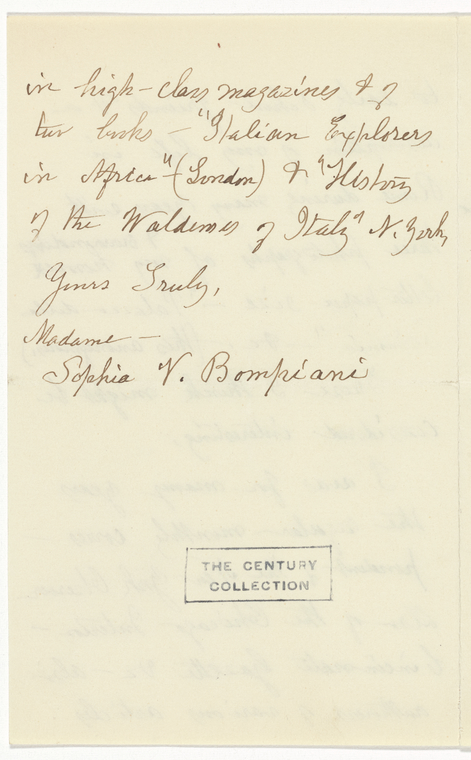 in high-class magazines & of
two books - "Italian Explorers
in Africa" - (London) & "History
of the Waldenses of Italy" N. York,
Yours Truly,
Madame -
Sophia V. Bompiani
THE CENTURY
COLLECTION